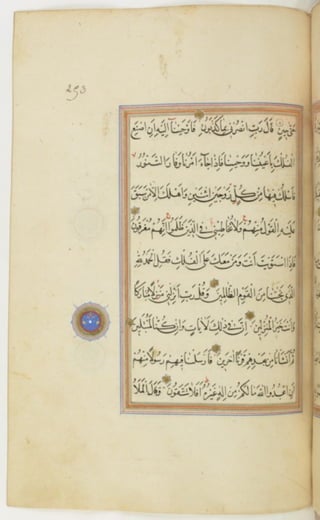 253
حَتّٰى حِينٍ قَالَ رَبِّ انْصُرْنِي بِمَا كَذَّبُونِ فَاَوْحَيْنَا اِلَيْهِ اَنِ اصْنَعِ
الْفُلْكَ بِاَعْيُنِنَا وَوَحْيِنَا فَاِذَا جَاءَ اَمْرُنَا وَفَارَ التَّنُّورُ
فَاسْلُكْ فِيهَا مِنْ كُلٍّ زَوْجَيْنِ اثْنَيْنِ وَاَهْلَكَ اِلَّا مَنْ سَبَقَ
عَلَيْهِ الْقَوْلُ مِنْهُمْ وَلَا تُخَاطِبْنِي فِي الَّذِينَ ظَلَمُوا اِنَّهُمْ مُغْرَقُونَ
فَاِذَا اسْتَوَيْتَ اَنْتَ وَمَنْ مَعَكَ عَلَى الْفُلْكِ فَقُلِ الْحَمْدُ لِلّٰهِ
الَّذِي نَجّٰينَا مِنَ الْقَوْمِ الظَّالِمِينَ وَقُلْ رَبِّ اَنْزِلْنِي مُنْزَلًا مُبَارَكًا
وَاَنْتَ خَيْرُ الْمُنْزِلِينَ اِنَّ فِي ذٰلِكَ لَاٰيَاتٍ وَاِنْ كُنَّا لَمُبْتَلِينَ
ثُمَّ اَنْشَأْنَا مِنْ بَعْدِهِمْ قَرْنًا اٰخَرِينَ فَاَرْسَلْنَا فِيهِمْ رَسُولًا مِنْهُمْ
اَنِ اعْبُدُوا اللّٰهَ مَا لَكُمْ مِنْ اِلٰهٍ غَيْرُهُ اَفَلَا تَتَّقُونَ وَقَالَ الْمَلَاُ